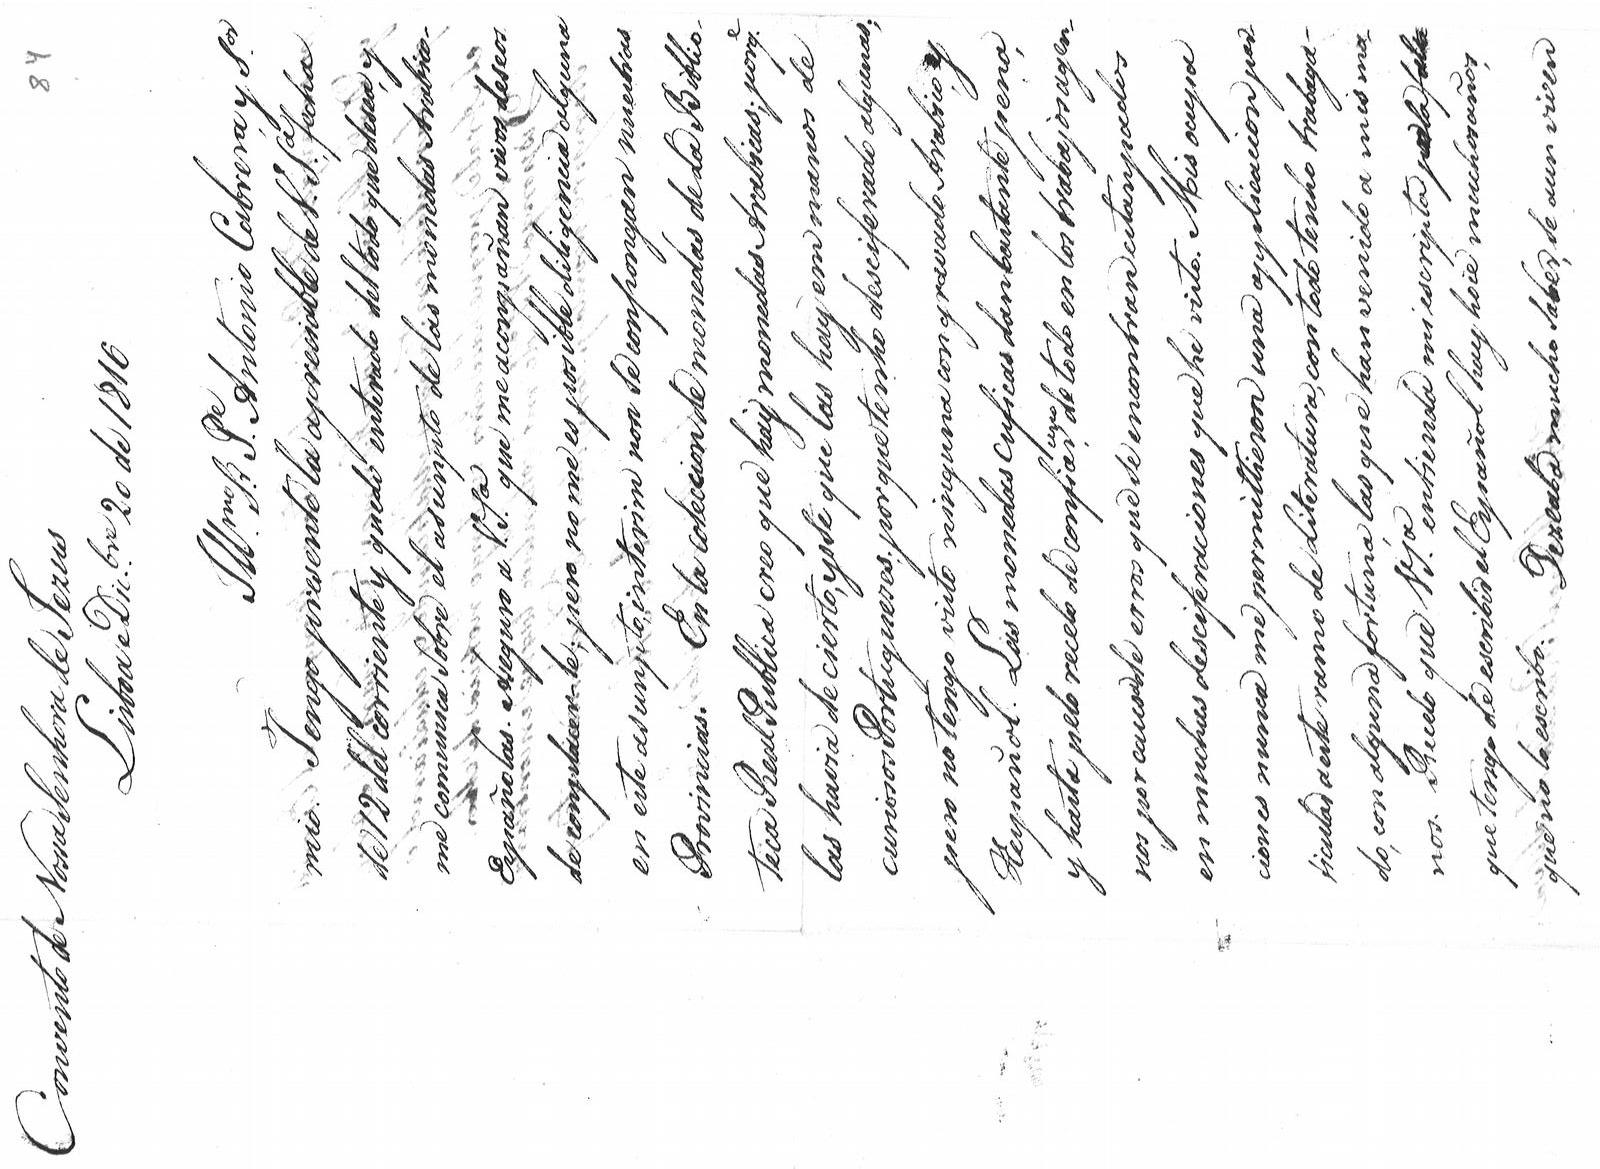 84
Convento de Nossa Senhora de Jezus
Lisboa e Dic.bre 20 de 1816
Illmo. R. P.De Antonio Cabrera, y S.or
mio. Tengo presente la apreciable de V. S.ia fecha
de 12 del corriente y quedo enterado del todo que desea, y
me comunica sobre el asumpto de las monedas Arabico-
Españolas. Aseguro a V. S.ia que me acompañan vivos deseos
de complacer-le, pero no me es posible diligencia alguna
en este asumpto, interim non se compongan nuestras
Provincias. En la coleccion de monedas de la Biblio-
teca Real Publica creo que hay monedas Arabias; porq.e
las havia de cierto, y sé que las hay em manos de
curiosos Portugueses, porque tenho descifrado algunas;
pero no tengo visto ninguna con gravado Arabico y
Hespañol. Las monedas cuficas dan bastante pena,
y hasta pelo recelo de confiar-se de todo en los trabajos agen-
nos por causa de erros que se encontran estampados
en muchas desciferaciones que he visto. Mis ocupa
ciones nunca me permitieron una applicacion par
ticular a este ramo de literatura, con todo tenho trabaja-
do, con alguna fortuna las que han venido a mis ma
nos. Recelo que V. S.ia entienda mi escripto
que tengo de escribir el Español huy hoie muchos años,
que no lo escribo. Dezeaba mucho saber, se aun viven